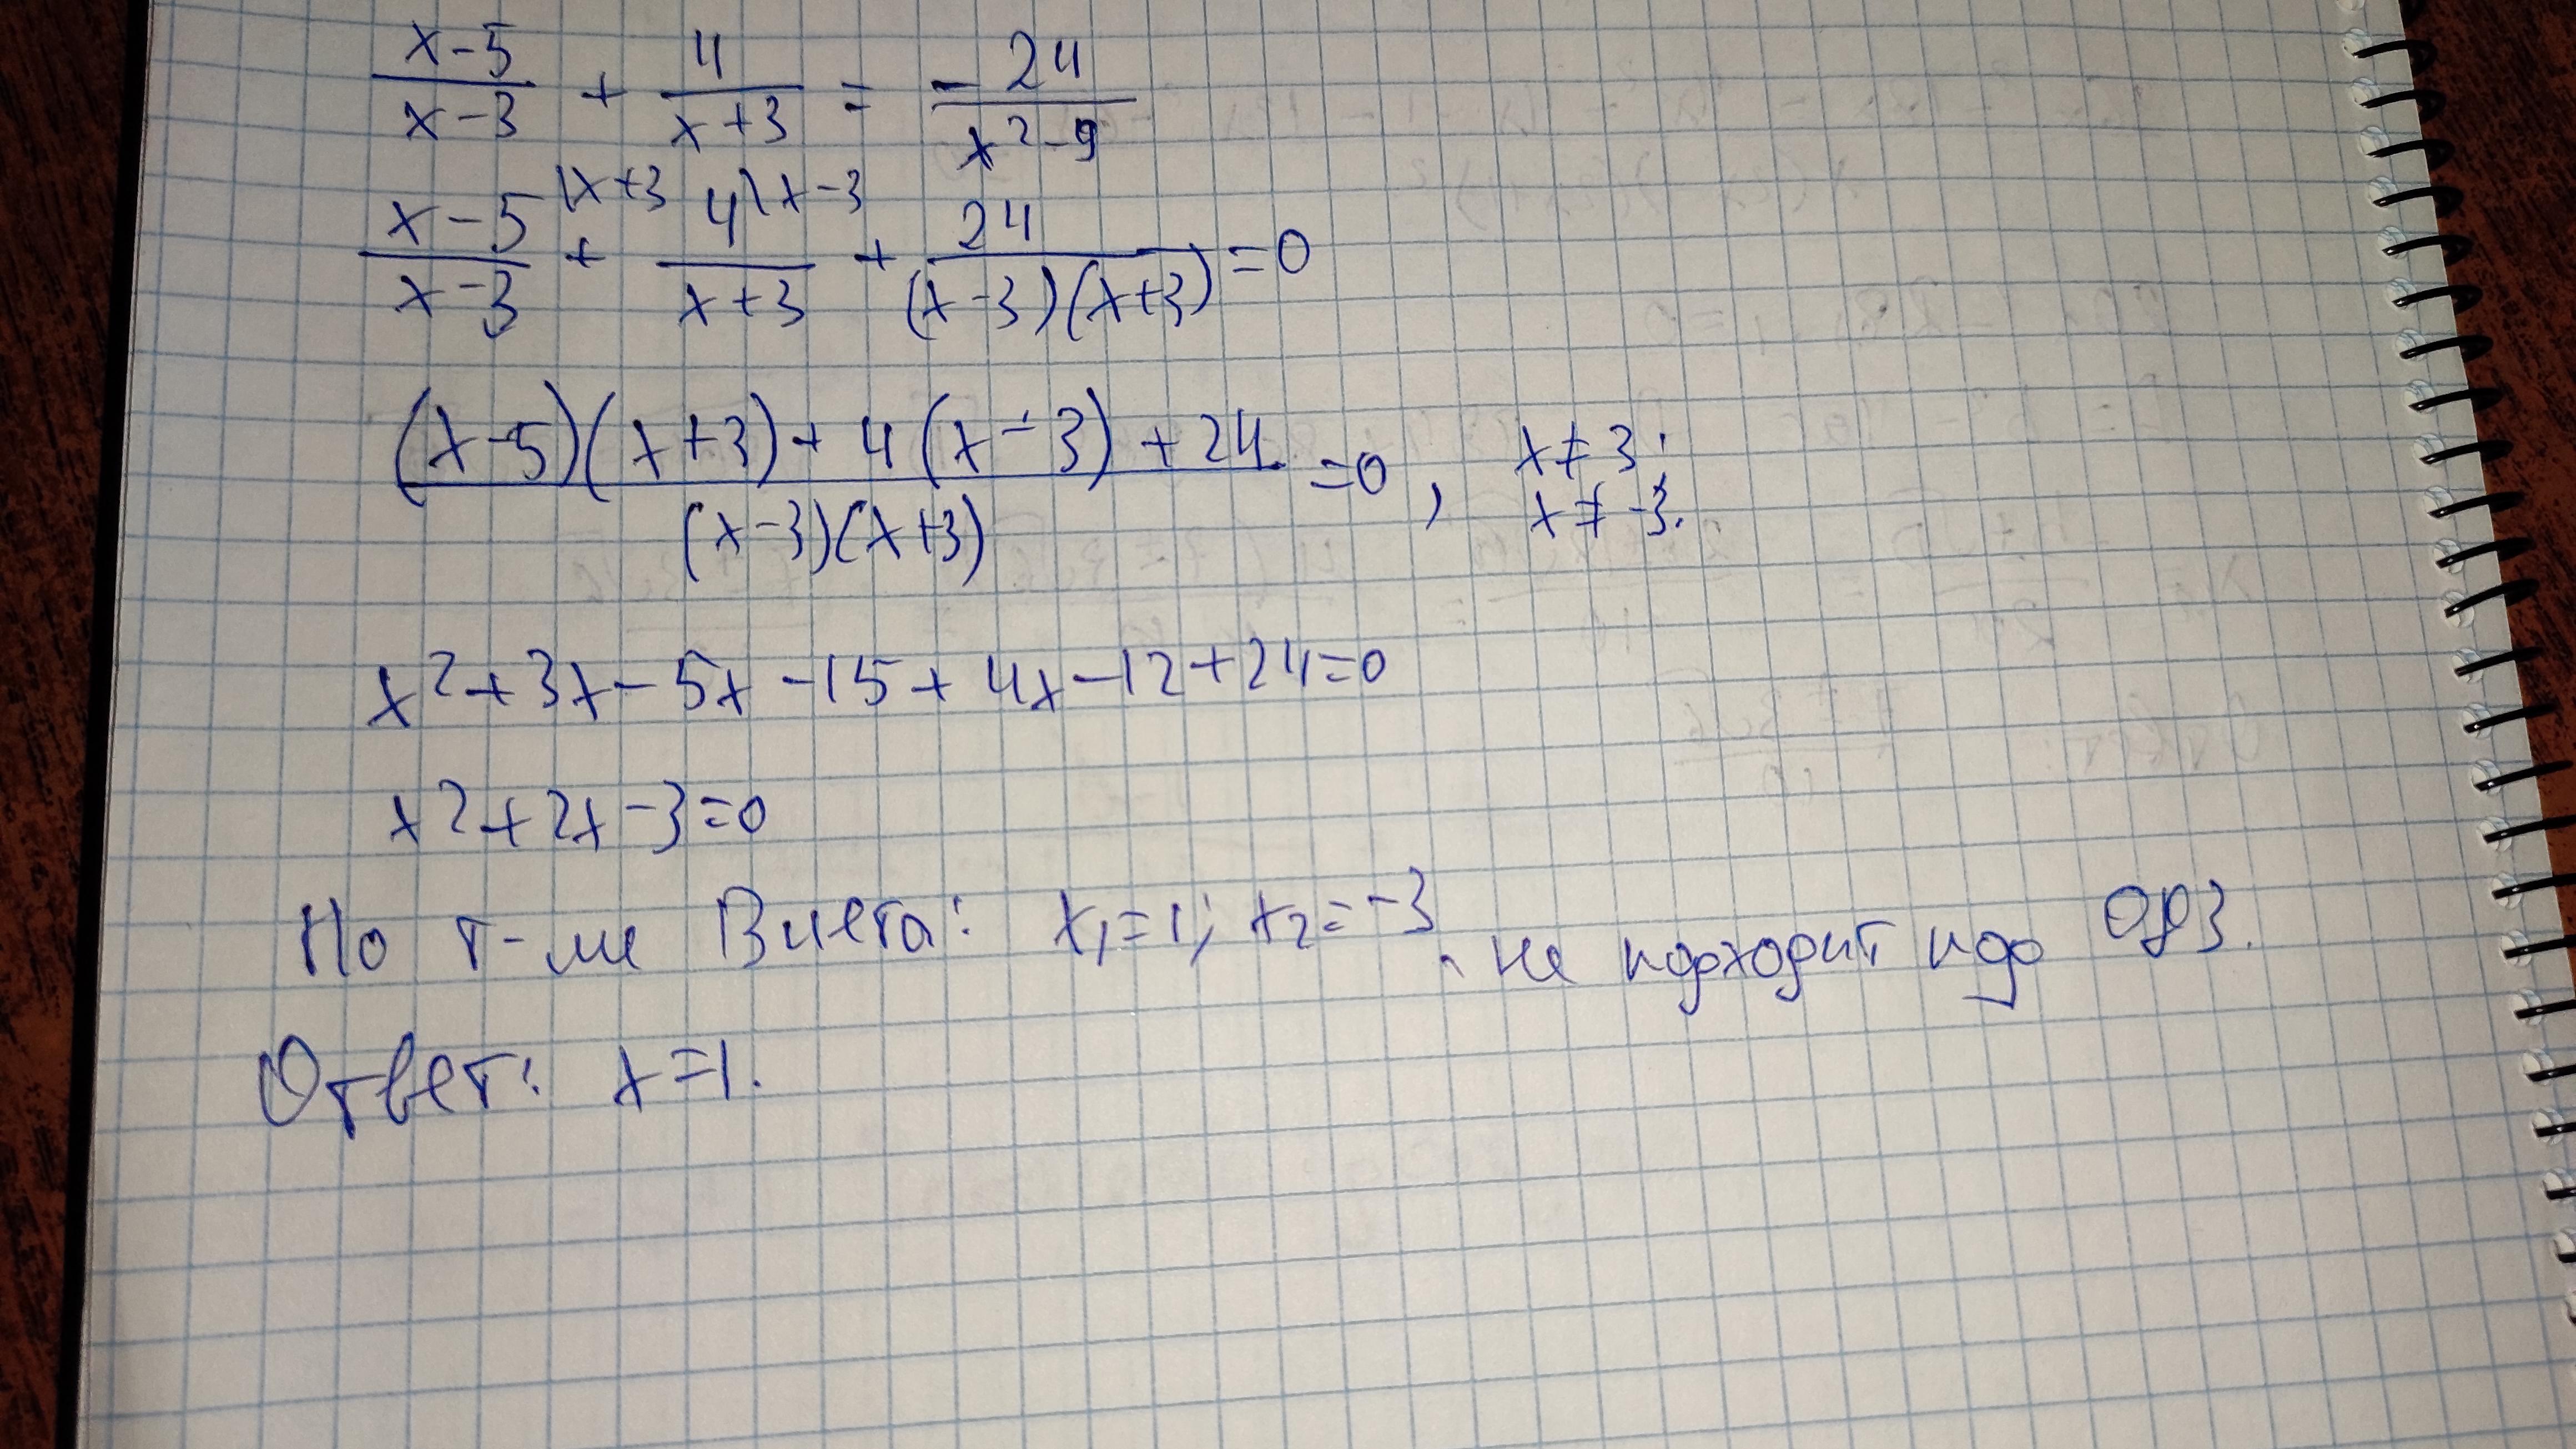 x-5/x-3 + 4/x+3 = -24/x²-9
x-5\x+3/x-3 + 4\x-3/x+3 + 24/(x-3)(x+3) =0
(x-5)(x+3)+4(x-3)+24/(x-3)(x+3) =0, x≠3; x≠-3.
x²+3x-5x-15+4x-12+24=0
x²+2x-3=0
По т-ме Виета: x₁=1; x₂=-3 - не подходит под ОДЗ.
Ответ: x=1.